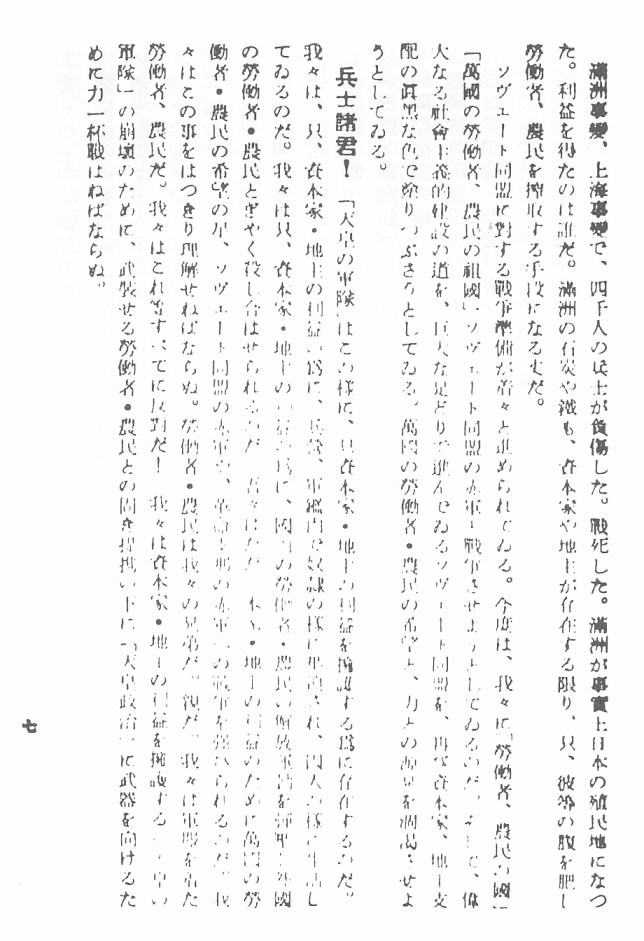 滿洲事變、上海事變で、四千人の兵士が負傷した。戰死した。滿洲が事實上日本の殖民地になつ
た。利益を得たのは誰だ。滿洲の石炭や鐵も、資本家や地主が存在する限り、只、彼等の腹を肥し
勞働者、農民を搾取する手段になる丈だ。
ソヴェート同盟に對する戰爭準備が着々と進められてゐる。今度は、我々に「勞働者、農民の國」
「萬國の勞働者、農民の祖國」ソヴェート同盟の赤軍と戰爭させようとしてゐるのだ。そして、偉
大なる社會主義的建設の道を、巨大な足どりで進んでゐるソヴェート同盟を、再び資本家、地主支
配の眞黑な色で塗りつぶさうとしてゐる。萬國の勞働者・農民の希望と、力との源泉を涸渇させよ
うとしてゐる。
兵士諸君！「天皇の軍隊」はこの樣に、只資本家・地主の利益を擁護する爲に存在するのだ。
我々は、只、資本家・地主の利益の爲に、兵營、軍艦內で奴隸の樣に され、囚人の樣に生活し
てゐるのだ。我々は只、資本家・地主の利益の爲に、國內の勞働者・農民の解放運動を彈壓し外國
の勞働者・農民とぎやく殺し合はせられるのだ 我々はただ 本家・地主の利益のために萬國の勞
働者・農民の希望の星、ソヴェート同盟の赤軍や、革命支那の赤軍への戰爭を强ひられるのだ。我
々はこの事をはつきり理解せねばならぬ。勞働者・農民は我々の兄弟だ。親だ。我々は軍服を着た
勞働者、農民だ。我々はこれ等すべてに反對だ！ 我々は資本家・地主の利益を擁護する「天皇の
軍隊」の崩壞のために、武裝せる勞働者・農民との固き提携の下に「天皇政治」に武器を向けるた
めに力一杯戰はねばならぬ。
七